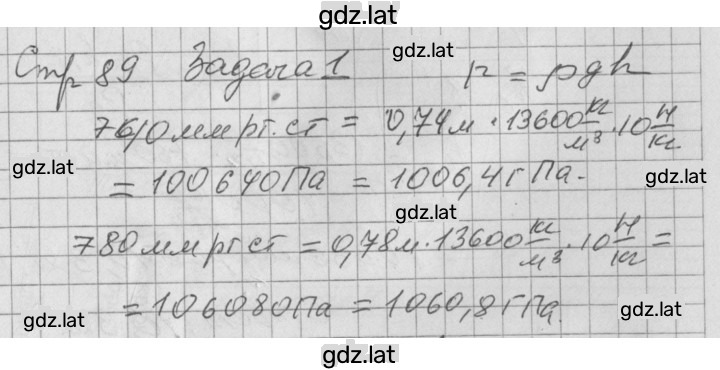 gdz.lat
Стр 89 Задача 1 p = ρgh
gdz.lat
740 мм рт. ст = 0,74 м · 13600 кг/м³ · 10 Н/кг
gdz.lat
= 100640 Па = 1006,4 гПа.
gdz.lat
gdz.lat
780 мм рт ст = 0,78 м · 13600 кг/м³ · 10 Н/кг =
= 106080 Па = 1060,8 ГПа.
gdz.lat
gdz.lat
gdz.lat